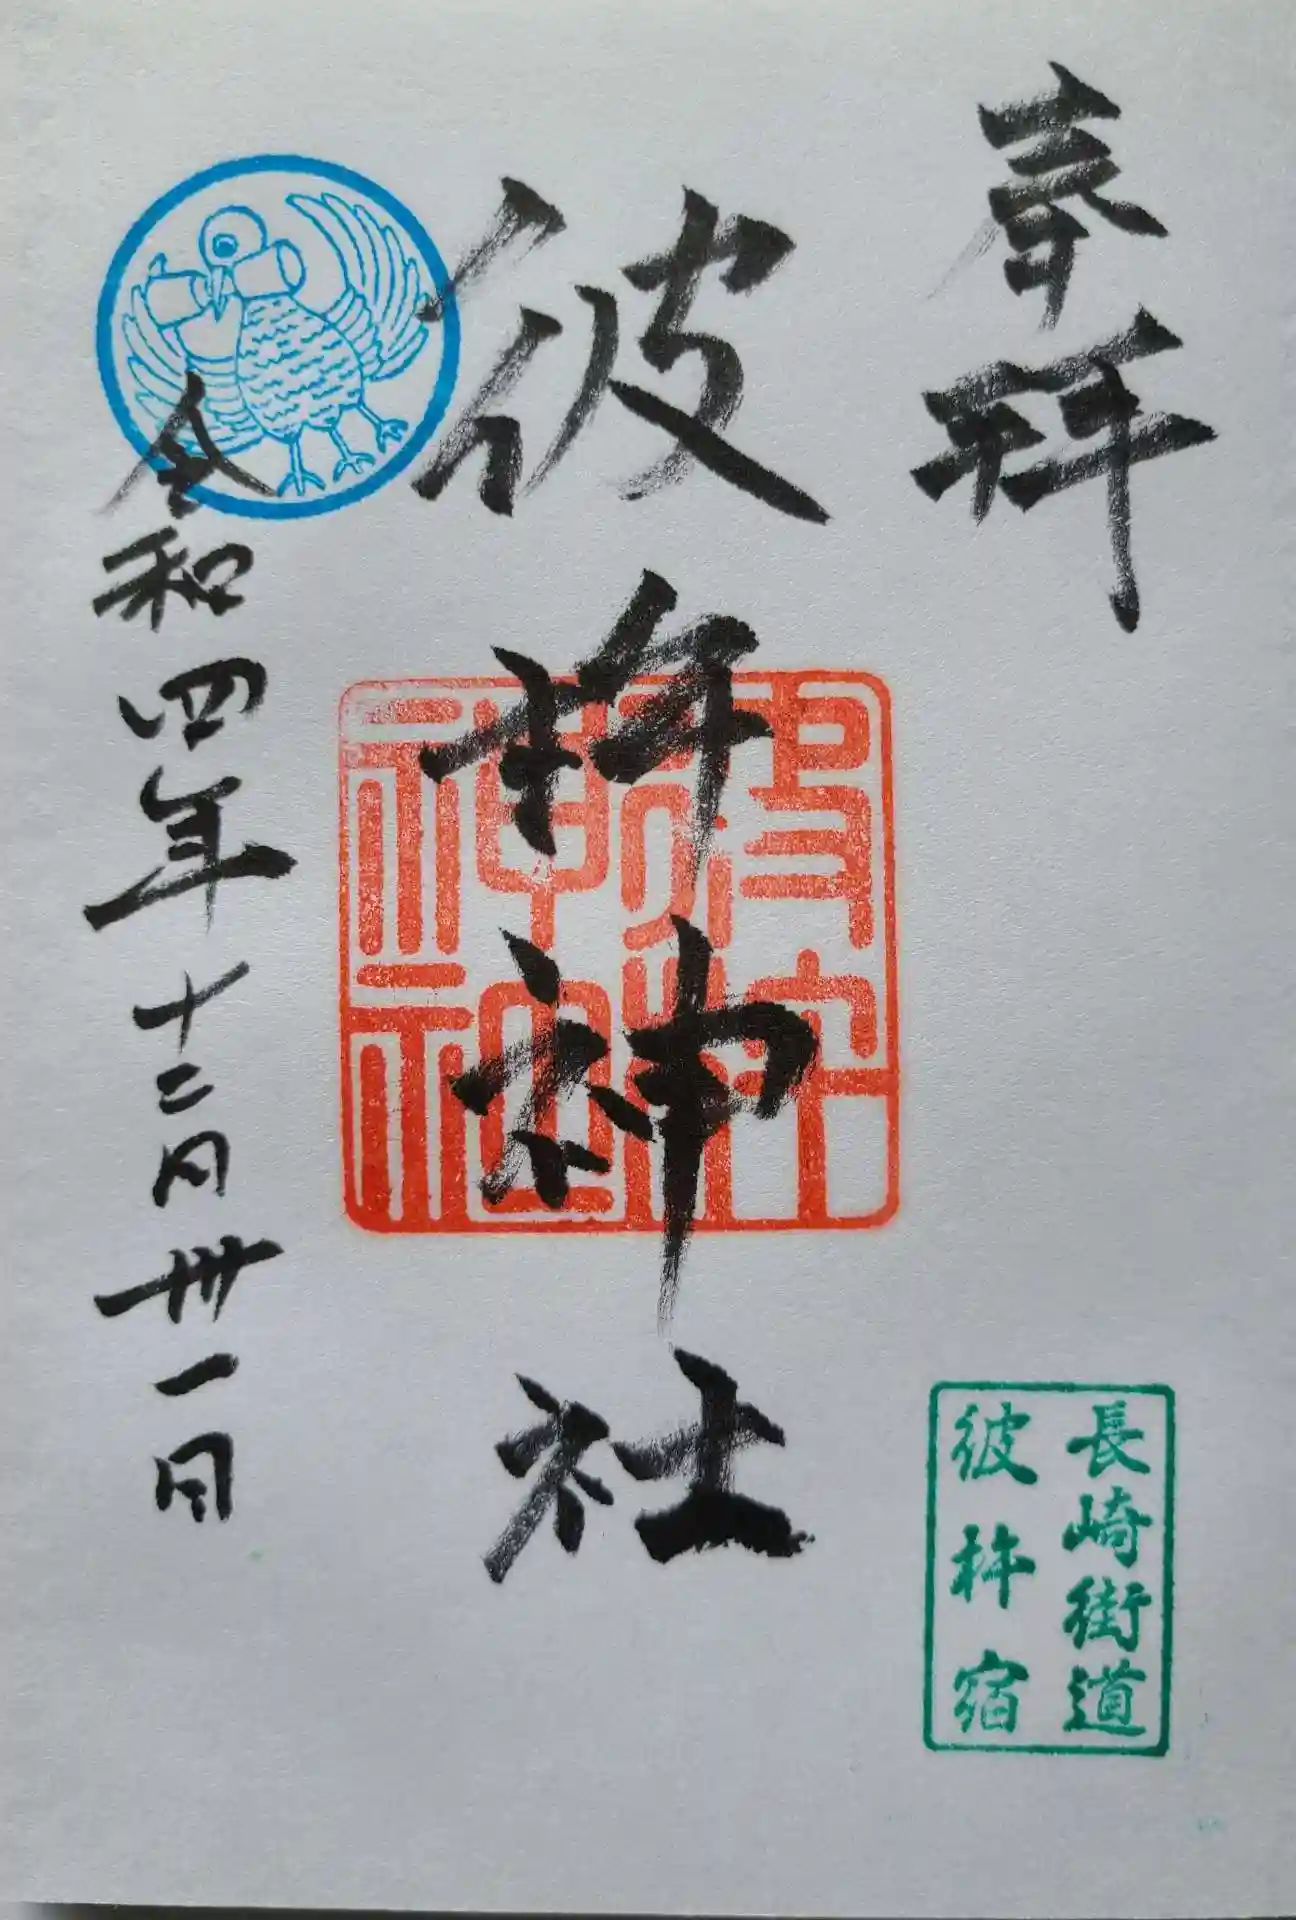 奉拝
彼杵神社
令和四年十二月卅一日
長崎街道
彼杵宿